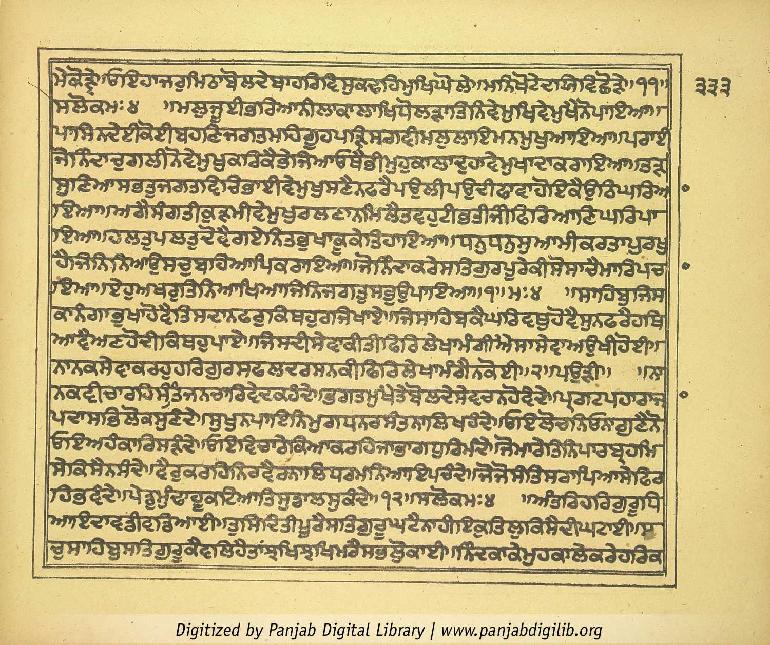 ਮੇਕੋੜੇ॥ਓਇਹਾਜਰੁਮਿਠਾਬੋਲਦੇਬਾਹਰਿਵਿਸੁਕਢਹਿਮੁਖਿਘੋਲੇ॥ਮਨਿਖੋਟੇਦਯਿਵਿਛੋੜੇ॥੧੧॥ ੩੩੩
ਸਲੋਕਮਃ੪ ॥ਮਲੁਜੂਈਭਰਿਆਨੀਲਾਕਾਲਾਖਿਧੋਲੜਾਤਿਨਿਵੇਮੁਖਿਵੇਮੁਖੈਨੋਪਾਇਆ॥
ਪਾਸਿਨਦੇਈਕੋਈਬਹਣਿਜਗਤਮਹਿਗੂਹਪੜਿਸਗਵੀਮਲੁਲਾਇਮਨਮੁਖੁਆਇਆ॥ਪਰਾਈ
ਜੋਨਿੰਦਾਚੁਗਲੀਨੋਵੇਮੁਖੁਕਰਿਕੈਭੇਜਿਆਓਥੈਭੀਮੁਹੁਕਾਲਾਦੁਹਾਵੇਮੁਖਾਦਾਕਰਾਇਆ॥ਤੜ
ਸੁਣਿਆਸਭਤੁਜਗਤਵਿਚਿਭਾਈਵੇਮੁਖੁਸਣੈਨਫਰੈਪਉਲੀਪਉਦੀਫਾਵਾਹੋਇਕੈਉਠਿਘਰਿਆ
ਇਆ॥ਅਗੈਸੰਗਤੀਕੁੜਮੀਵੇਮੁਖੁਰਲਣਾਨਮਿਲੈਤਵਹੁਟੀਭਤੀਜੀਫਿਰਿਆਣਿਘਰਿਪਾ
ਇਆ॥ਹਲਤੁਪਲਤੁਦੋਵੈਗਏਨਿਤਭੁਖਾਕੂਕੇਤਿਹਾਇਆ॥ਧਨੁਧਨੁਸੁਆਮੀਕਰਤਾਪੁਰਖੁ
ਹੈਜਿਨਿਨਿਆਉਸਚੁਬਹਿਆਪਿਕਰਾਇਆ॥ਜੋਨਿੰਦਾਕਰੇਸਤਿਗੁਰਪੂਰੇਕੀਸੋਸਾਚੈਮਾਰਿਪਚ
ਇਆ॥ਏਹੁਅਖਰੁਤਿਨਿਆਖਿਆਜਿਨਿਜਗਤੁਸਭੁਉਪਾਇਆ॥੧॥ਮਃ੪ ॥ਸਾਹਿਬੁਜਿਸ
ਕਾਨੰਗਾਭੁਖਾਹੋਵੈਤਿਸਦਾਨਫਰੁਕਿਥਹੁਰਜਿਖਾਏ॥ਜਿਸਾਹਿਬਕੈਘਰਿਵਥੁਹੋਵੈਸੁਨਫਰੈਹਥਿ
ਆਵੈਅਣਹੋਦੀਕਿਥਹੁਪਾਏ॥ਜਿਸਦੀਸੇਵਾਕੀਤੀਫਿਰਿਲੇਖਾਮੰਗੀਐਸਾਸੇਵਾਅਉਖੀਹੋਈ॥
ਨਾਨਕਸੇਵਾਕਰਹੁਹਰਿਗੁਰਸਫਲਦਰਸਨਕੀਫਿਰਿਲੇਖਾਮੰਗੈਨਕੋਈ॥੨॥ਪਉੜੀ॥ ॥ਨਾ
ਨਕਵੀਚਾਰਹਿਸੰਤਜਨਚਾਰਿਵੇਦਕਹੰਦੇ॥ਭਗਤਮੁਖੈਤੇਬੋਲਦੇਸੇਵਚਨਹੋਵੰਦੇ॥ਪ੍ਰਗਟਪਹਾਰਾਜਾ
ਪਦਾਸਭਿਲੋਕਸੁਣੰਦੇ॥ਸੁਖੁਨਪਾਇਨਿਮੁਗਧਨਰਸੰਤਨਾਲਿਖਹੰਦੇ॥ਓਇਲੋਚਨਿਓਨਾਗੁਣੈਨੋ
ਓਇਅਹੰਕਾਰਿਸੜੰਦੇ॥ਓਇਵਿਚਾਰੇਕਿਆਕਰਹਿਜਾਭਾਗਧੁਰਿਮੰਦੇ॥ਜੋਮਾਰੇਤਿਨਿਪਾਰਬ੍ਰਹਮਿ
ਸੇਕਿਸੈਨਸੰਦੇ॥ਵੈਰੁਕਰਹਿਨਿਰਵੈਰਨਾਲਿਧਰਮਨਿਆਇਪਚੰਦੇ॥ਜੋਜੋਸੰਤਿਸਰਾਪਿਆਸੇਫਿਰ
ਹਿਭਵੰਦੇ॥ਪੇਡੁਮੁੰਢਾਹੂਕਟਿਆਤਿਸੁਡਾਲਸੁਕੰਦੇ॥੧੨॥ਸਲੋਕਮਃ੪ ॥ਅੰਤਰਿਹਰਿਗੁਰੂਧਿ
ਆਇਦਾਵਡੀਵਡਿਆਈ॥ਤੁਸਿਦਿਤੀਪੂਰੈਸਤਿਗੁਰੂਘਟੈਨਾਹੀਇਕੁਤਿਲੁਕਿਸੈਦੀਘਟਾਈ॥ਸ
ਚੁਸਾਹਿਬੁਸਤਿਗੁਰੂਕੈਵਲਿਹੈਤਾਂਝਖਿਝਖਿਮਰੈਸਭਲੋੁਕਾਈ॥ਨਿੰਦਕਾਕੇਮੁਹਕਾਲੇਕਰੇਹਰਿਕ
Digitized by Panjab Digital Library | www.panjabdigilib.org